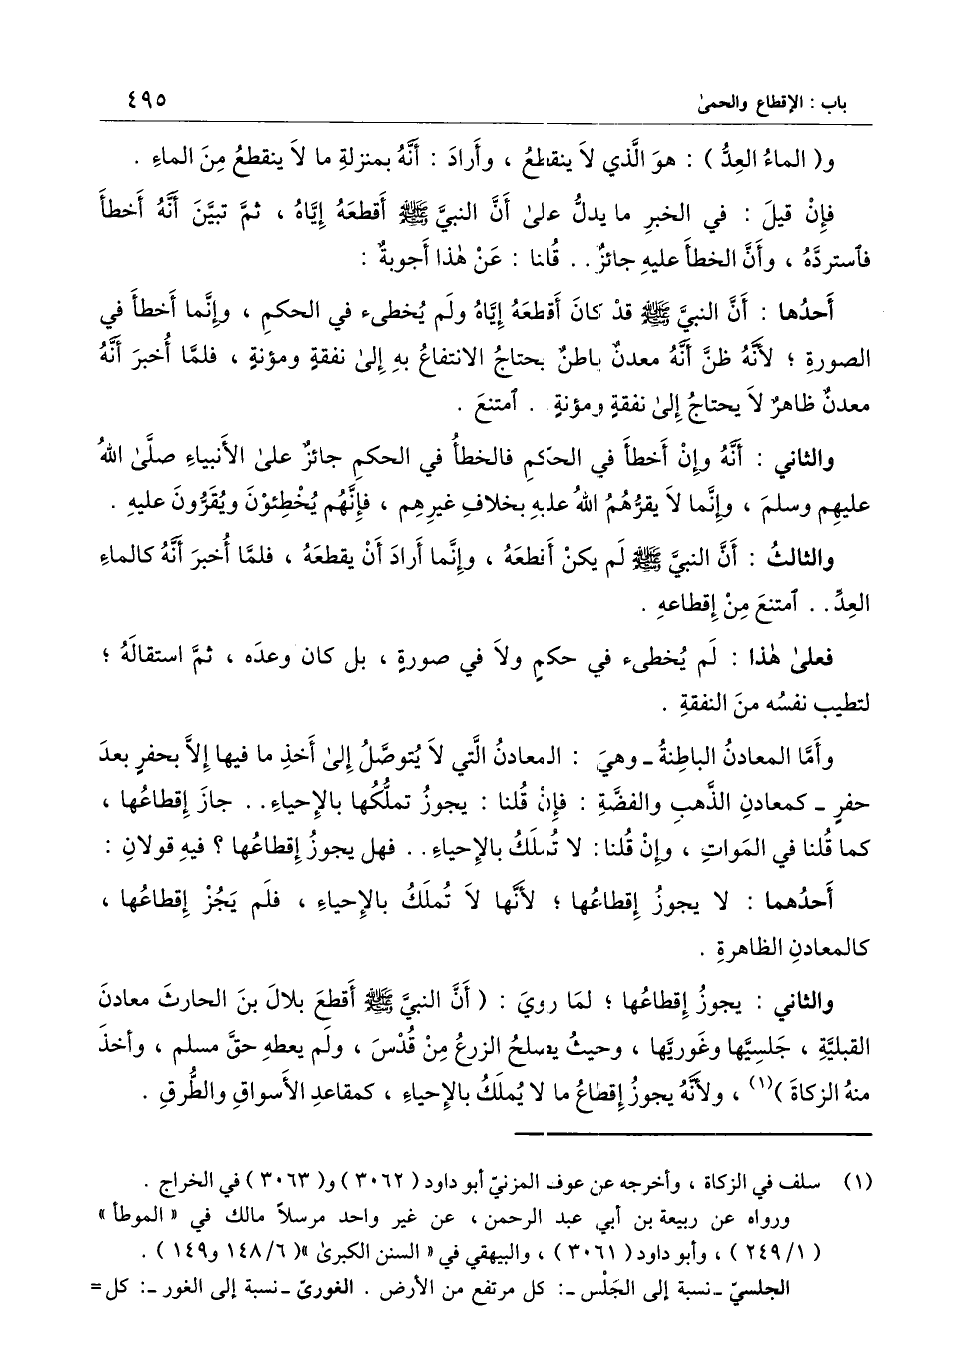 باب : الإقطاع والحمىٰ ٤٩٥
و( الماءُ العِدُّ ) : هوَ الَّذي لاَ ينقطعُ ، وأَرادَ : أَنَّهُ بمنزلةِ ما لاَ ينقطعُ مِنَ الماءِ .
فإِنْ قيلَ : في الخبرِ ما يدلُّ علىٰ أَنَّ النبيَّ ﷺ أَقطعَهُ إِيَّاهُ ، ثمَّ تبيَّنَ أَنَّهُ أَخطأَ
فٱستردَّهُ ، وأَنَّ الخطأَ عليهِ جائزٌ . . قُلنا : عَنْ هٰذا أَجوبةٌ :
أَحدُها : أَنَّ النبيَّ ﷺ قدْ كانَ أَقطعَهُ إِيَّاهُ ولَم يُخطىء في الحكمِ ، وإِنَّما أَخطأَ في
الصورةِ ؛ لأَنَّهُ ظنَّ أَنَّهُ معدنٌ باطنٌ يحتاجُ الانتفاعُ بهِ إِلىٰ نفقةٍ ومؤنةٍ ، فلمَّا أُخبرَ أَنَّهُ
معدنٌ ظاهرٌ لاَ يحتاجُ إِلىٰ نفقةٍ ومؤنةٍ . . ٱمتنعَ .
والثاني : أَنَّهُ وإِنْ أَخطأَ في الحكمِ فالخطأُ في الحكمِ جائزٌ علىٰ الأَنبياءِ صلَّىٰ اللهُ
عليهِم وسلمَ ، وإِنَّما لاَ يقرُّهُمُ اللهُ عليهِ بخلافِ غيرِهِم ، فإِنَّهُم يُخْطِئوْنَ ويُقَرُّونَ عليهِ .
والثالثُ : أَنَّ النبيَّ ﷺ لَم يكنْ أَقطعَهُ ، وإِنَّما أَرادَ أَنْ يقطعَهُ ، فلمَّا أُخبرَ أَنَّهُ كالماءِ
العِدِّ . . ٱمتنعَ مِنْ إِقطاعهِ .
فعلىٰ هٰذا : لَم يُخطىء في حكمٍ ولاَ في صورةٍ ، بل كان وعدَه ، ثمَّ استقالَهُ ؛
لتطيب نفسُه منَ النفقةِ .
وأَمَّا المعادنُ الباطِنةُ ـ وهيَ : المعادنُ الَّتي لاَ يُتوصَّلُ إِلىٰ أَخذِ ما فيها إِلاَّ بحفرٍ بعدَ
حفرٍ ـ كمعادنِ الذَّهبِ والفضَّةِ : فإِنْ قُلنا : يجوزُ تملُّكُها بالإِحياءِ . . جازَ إِقطاعُها ،
كما قُلنا في المَواتِ ، وإِنْ قُلنا : لا تُملَكُ بالإِحياءِ . . فهل يجوزُ إِقطاعُها ؟ فيهِ قولانِ :
أَحدُهما : لا يجوزُ إِقطاعُها ؛ لأَنَّها لاَ تُملَكُ بالإِحياءِ ، فلَم يَجُزْ إِقطاعُها ،
كالمعادنِ الظاهرةِ .
والثاني : يجوزُ إِقطاعُها ؛ لمَا رويَ : ( أَنَّ النبيَّ ﷺ أَقطعَ بلالَ بنَ الحارثِ معادنَ
القبليَّةِ ، جَلسِيَّها وغَوريَّها ، وحيثُ يصلحُ الزرعُ مِنْ قُدْسَ ، ولَم يعطهِ حقَّ مسلمٍ ، وأخذَ
منهُ الزكاةَ )(١) ، ولأَنَّهُ يجوزُ إِقطاعُ ما لا يُملَكُ بالإِحياءِ ، كمقاعدِ الأَسواقِ والطُّرقِ .
(١) سلف في الزكاة ، وأخرجه عن عوف المزنيّ أبو داود ( ٣٠٦٢ ) و( ٣٠٦٣ ) في الخراج .
ورواه عن ربيعة بن أبي عبد الرحمن ، عن غير واحد مرسلاً مالك في « الموطأ »
( ٢٤٩/١ ) ، وأبو داود ( ٣٠٦١ ) ، والبيهقي في « السنن الكبرىٰ »( ١٤٨/٦ و١٤٩ ) .
الجلسيّ ـ نسبة إلى الجَلْس ـ : كل مرتفع من الأرض . الغوريّ ـ نسبة إلى الغور ـ : كل =